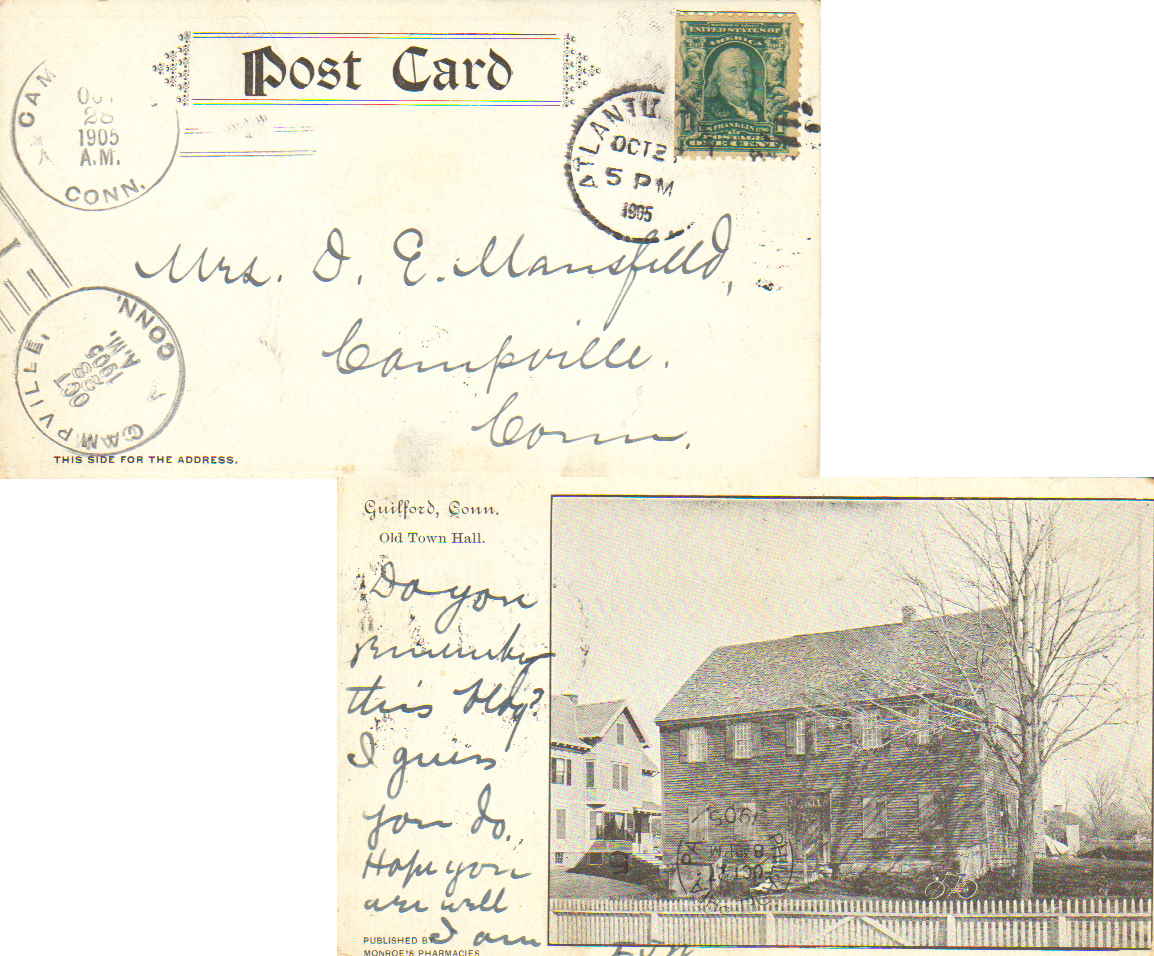 Post Card
CAM
OCT
28
1905
A.M.
CONN.
ATLANTIC
OCT 2
5 PM
1905
UNITED STATES OF
AMERICA
FRANKLIN
POSTAGE
ONE CENT
Mrs. D. E. Mansfield,
Campville.
Conn.
CAMPVILLE, CONN.
OCT
28
1905
A.M.
THIS SIDE FOR THE ADDRESS.
Guilford, Conn.
Old Town Hall.
Do you
remember
this bldg?
I guess
you do.
Hope you
are well
I am
PUBLISHED BY
MONROE'S PHARMACIES
1905
OCT 27
PA